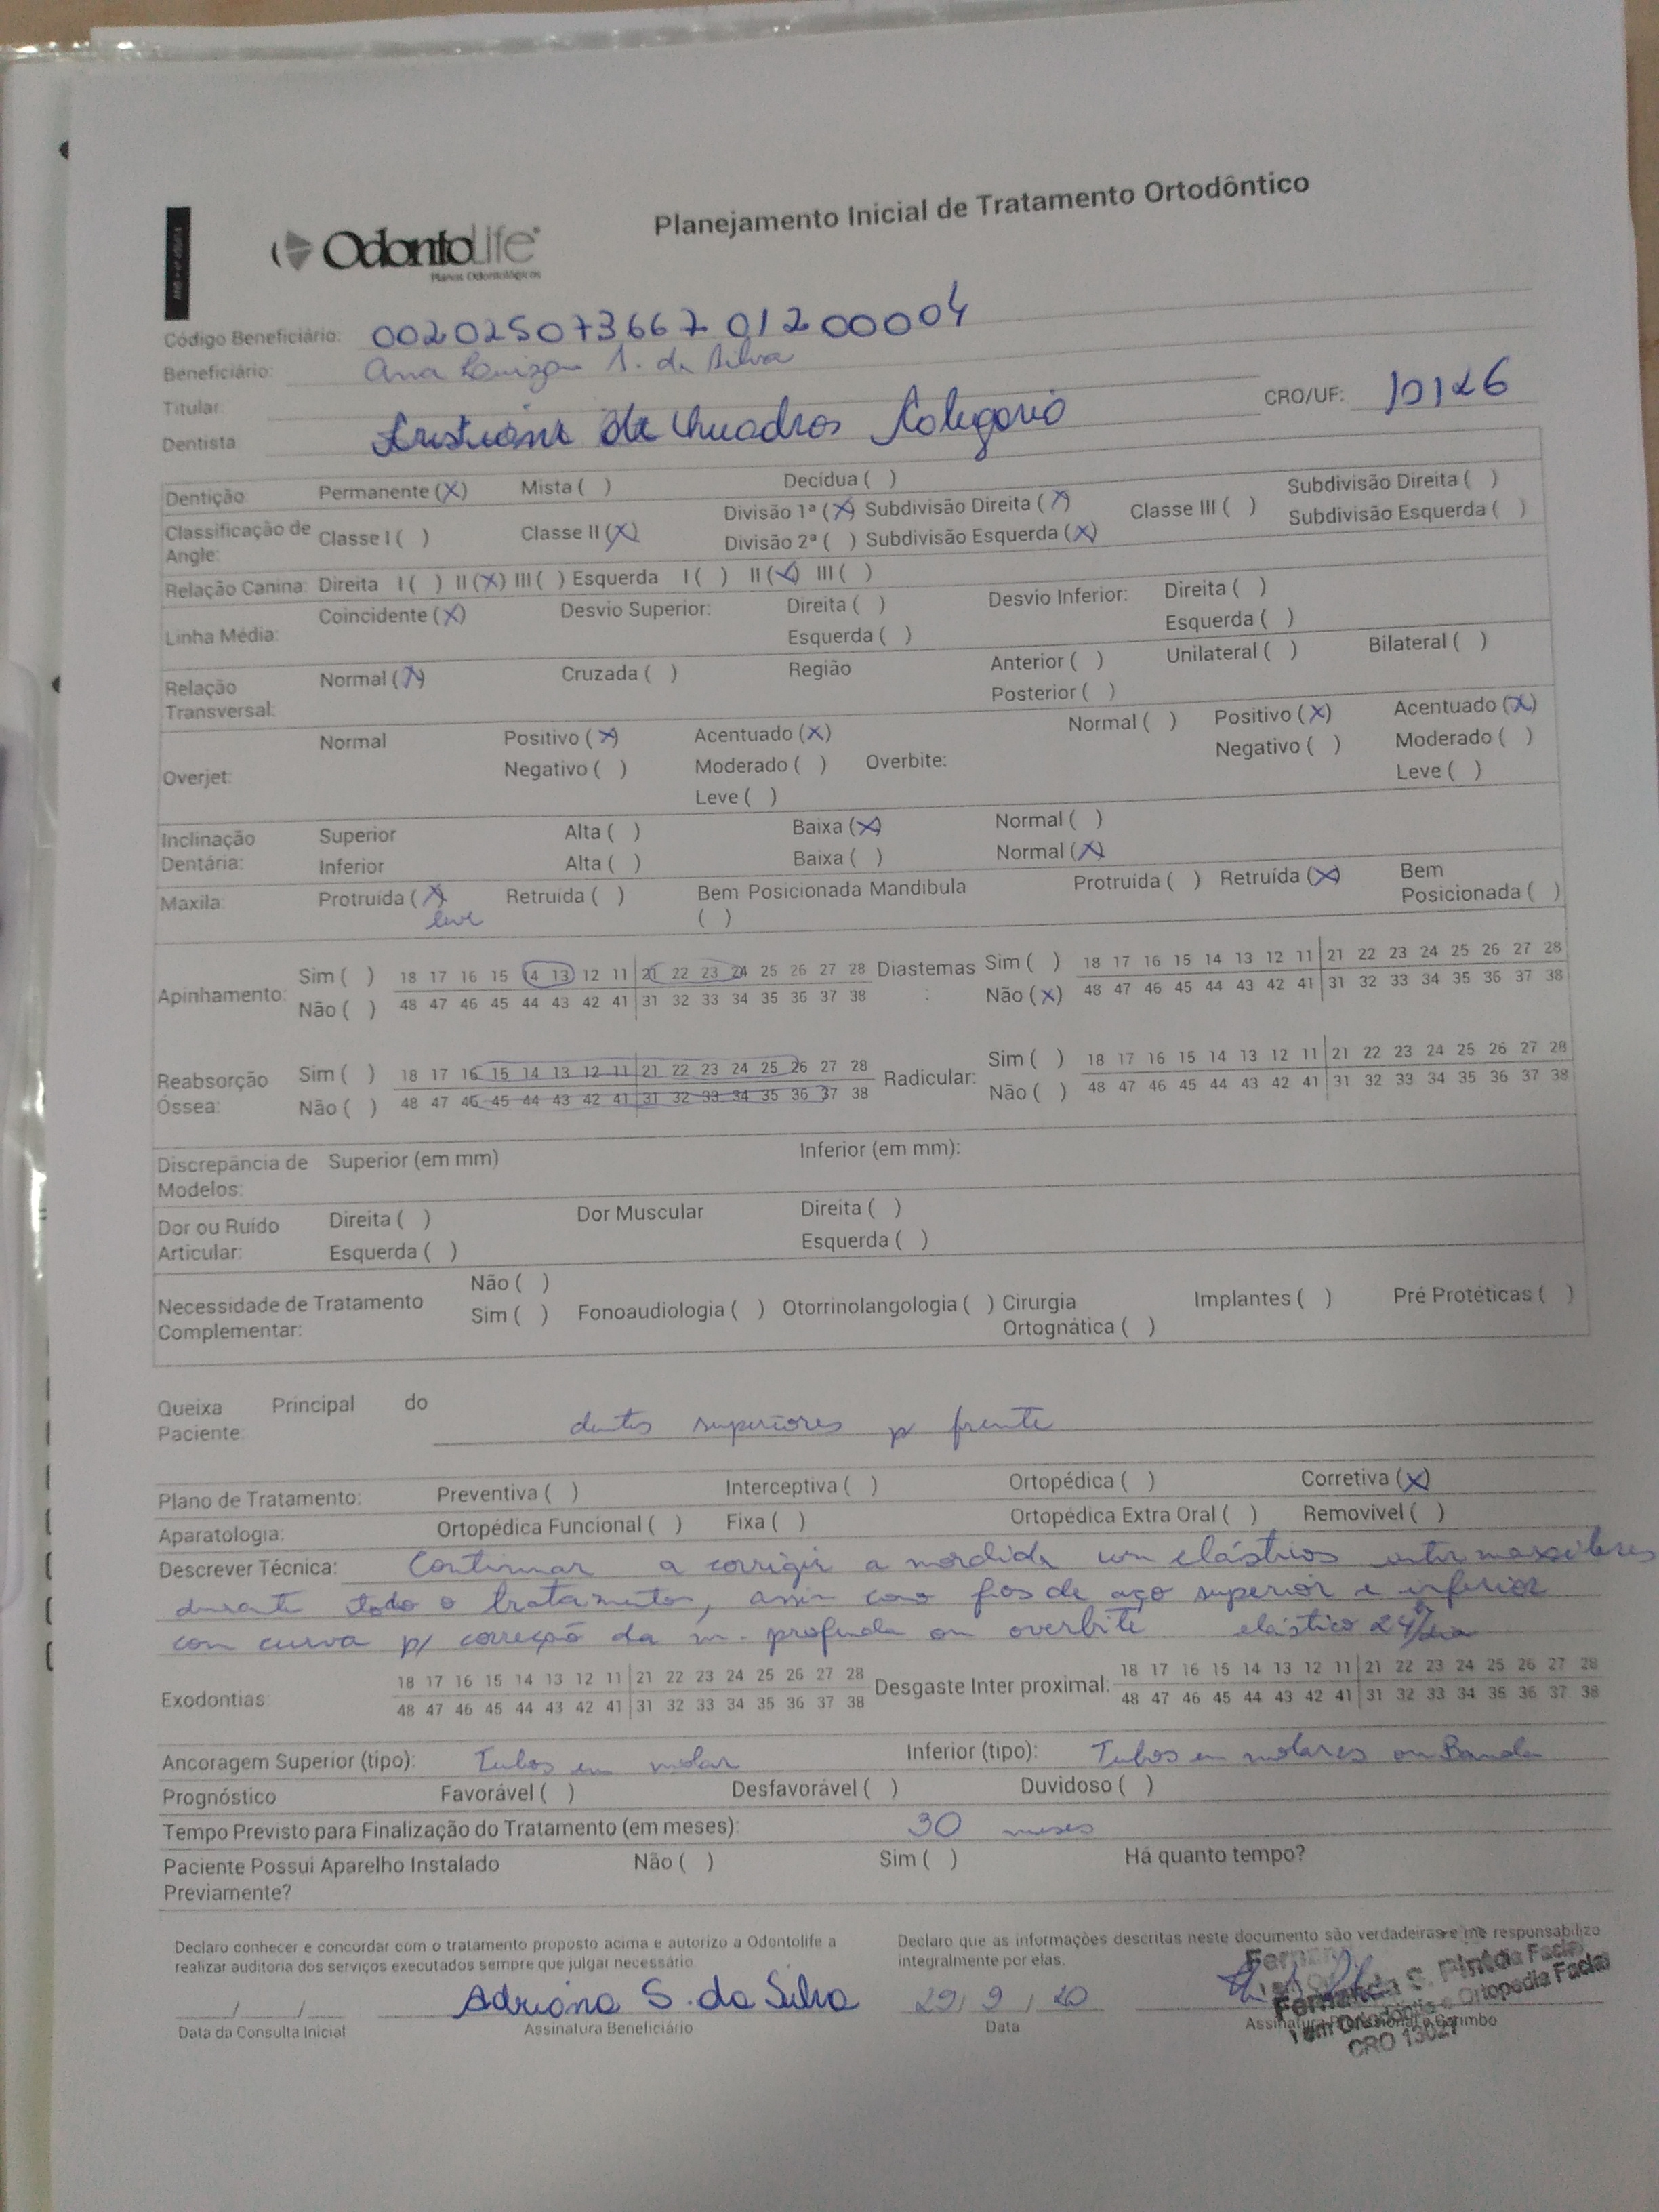 Planejamento Inicial de Tratamento Ortodôntico
OdontoLife
Planos Odontológicos
Código Beneficiário: 00202507366701200004
Beneficiário: Ana S. da Silva
Titular:
Dentista de Quadros CRO/UF: 10126
Dentição: Permanente (X) Mista ( ) Decídua ( )
Classificação de Angle: Classe I ( ) Classe II (X) Divisão 1ª (X) Subdivisão Direita (X) Classe III ( ) Subdivisão Direita ( )
Divisão 2ª ( ) Subdivisão Esquerda (X) Subdivisão Esquerda ( )
Relação Canina: Direita I ( ) II (X) III ( ) Esquerda I ( ) II (X) III ( )
Linha Média: Coincidente (X) Desvio Superior: Direita ( ) Desvio Inferior: Direita ( )
Esquerda ( ) Esquerda ( )
Relação Transversal: Normal (X) Cruzada ( ) Região Anterior ( ) Unilateral ( ) Bilateral ( )
Posterior ( )
Overjet: Normal Positivo (X) Acentuado (X) Overbite: Normal ( ) Positivo (X) Acentuado (X)
Negativo ( ) Moderado ( ) Negativo ( ) Moderado ( )
Leve ( ) Leve ( )
Inclinação Dentária: Superior Alta ( ) Baixa (X) Normal ( )
Inferior Alta ( ) Baixa ( ) Normal (X)
Maxila: Protruída (X) Retruída ( ) Bem Posicionada ( ) Mandíbula Protruída ( ) Retruída (X) Bem Posicionada ( )
leve
Apinhamento: Sim ( ) 18 17 16 15 14 13 12 11 21 22 23 24 25 26 27 28 Diastemas: Sim ( ) 18 17 16 15 14 13 12 11 21 22 23 24 25 26 27 28
Não ( ) 48 47 46 45 44 43 42 41 31 32 33 34 35 36 37 38 Não (X) 48 47 46 45 44 43 42 41 31 32 33 34 35 36 37 38
Reabsorção Óssea: Sim ( ) 18 17 16 15 14 13 12 11 21 22 23 24 25 26 27 28 Radicular: Sim ( ) 18 17 16 15 14 13 12 11 21 22 23 24 25 26 27 28
Não ( ) 48 47 46 45 44 43 42 41 31 32 33 34 35 36 37 38 Não ( ) 48 47 46 45 44 43 42 41 31 32 33 34 35 36 37 38
Discrepância de Modelos: Superior (em mm) Inferior (em mm):
Dor ou Ruído Articular: Direita ( ) Dor Muscular Direita ( )
Esquerda ( ) Esquerda ( )
Necessidade de Tratamento Complementar: Não ( )
Sim ( ) Fonoaudiologia ( ) Otorrinolangologia ( ) Cirurgia Ortognática ( ) Implantes ( ) Pré Protéticas ( )
Queixa Principal do Paciente: dentes superiores p/ frente
Plano de Tratamento: Preventiva ( ) Interceptiva ( ) Ortopédica ( ) Corretiva (X)
Aparatologia: Ortopédica Funcional ( ) Fixa ( ) Ortopédica Extra Oral ( ) Removível ( )
Descrever Técnica: Continuar a corrigir a mordida com elásticos intermaxilares
durante todo o tratamento, assim como fios de aço superior e inferior
com curva p/ correção da m. profunda ou overbite elástico 24h/dia
Exodontias: 18 17 16 15 14 13 12 11 21 22 23 24 25 26 27 28 Desgaste Inter proximal: 18 17 16 15 14 13 12 11 21 22 23 24 25 26 27 28
48 47 46 45 44 43 42 41 31 32 33 34 35 36 37 38 48 47 46 45 44 43 42 41 31 32 33 34 35 36 37 38
Ancoragem Superior (tipo): Tubos em molar Inferior (tipo): Tubos em molares ou Banda
Prognóstico Favorável ( ) Desfavorável ( ) Duvidoso ( )
Tempo Previsto para Finalização do Tratamento (em meses): 30 meses
Paciente Possui Aparelho Instalado Previamente? Não ( ) Sim ( ) Há quanto tempo?
Declaro conhecer e concordar com o tratamento proposto acima e autorizo a Odontolife a
realizar auditoria dos serviços executados sempre que julgar necessário.
Declaro que as informações descritas neste documento são verdadeiras e me responsabilizo
integralmente por elas.
/ / Adriana S. da Silva 29/9/20
Data da Consulta Inicial Assinatura Beneficiário Data Assinatura Profissional e Carimbo
Fernanda S. Pinto
em Ortodontia e Ortopedia Facial
CRO 13027